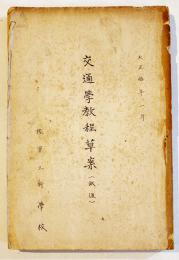 大正拾年一月
交通學教程草案（試運）
陸軍工科學校